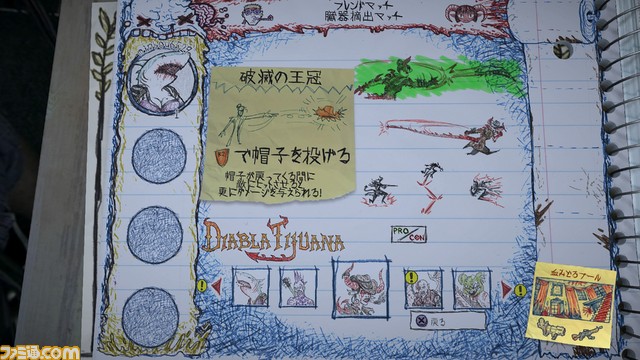 フレンドマッチ
臓器摘出マッチ
破滅の王冠
で帽子を投げる
帽子が戻ってくる間に
敵にヒットさせると
更にダメージを与えられる!
DIABLA TIJUANA
PRO/CON
戻る
血みどろプール
ファミ通.com